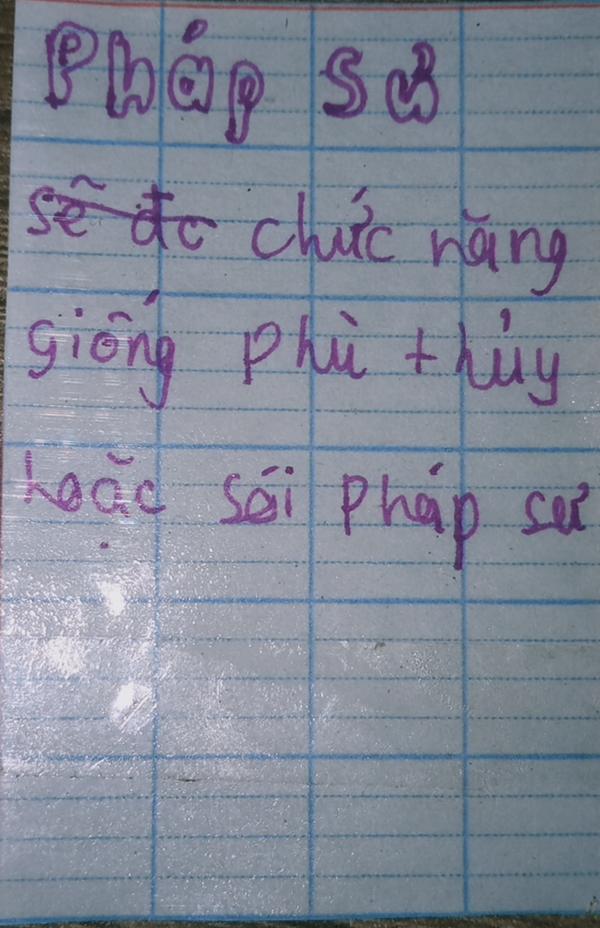 Pháp sư
sẽ đc chức năng
giống phù thủy
hoặc sói pháp sư